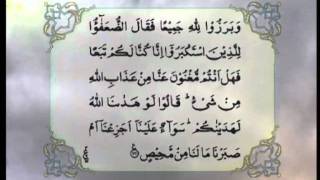 وَبَرَزُوْا لِلّٰهِ جَمِيْعًا فَقَالَ الضُّعَفٰٓؤُا
لِلَّذِيْنَ اسْتَكْبَرُوْٓا اِنَّا كُنَّا لَكُمْ تَبَعًا
فَهَلْ اَنْتُمْ مُّغْنُوْنَ عَنَّا مِنْ عَذَابِ اللّٰهِ
مِنْ شَيْءٍ ؕ قَالُوْا لَوْ هَدٰىنَا اللّٰهُ
لَهَدَيْنٰكُمْ ؕ سَوَآءٌ عَلَيْنَآ اَجَزِعْنَآ اَمْ
صَبَرْنَا مَا لَنَا مِنْ مَّحِيْصٍ